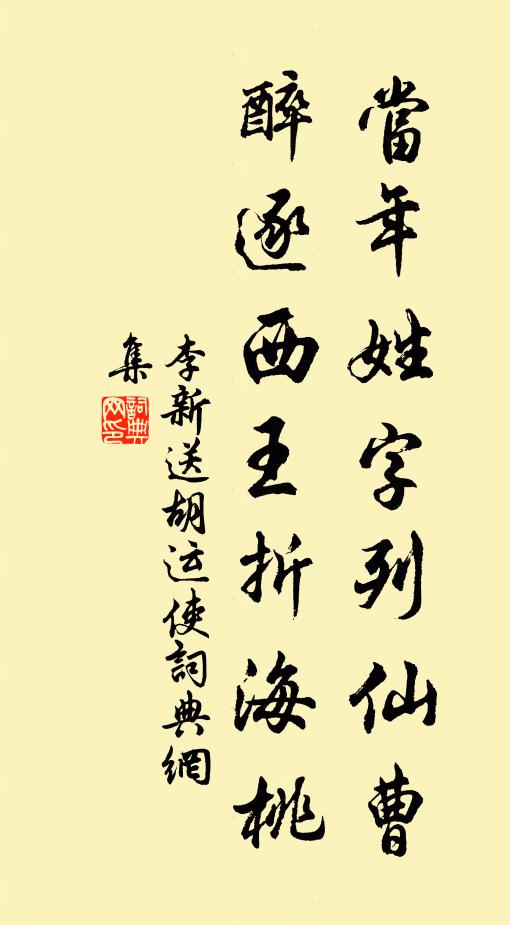 當年姓字列仙曹
醉逐西王折海桃
李新送胡运使詞典網
集
詞典網印